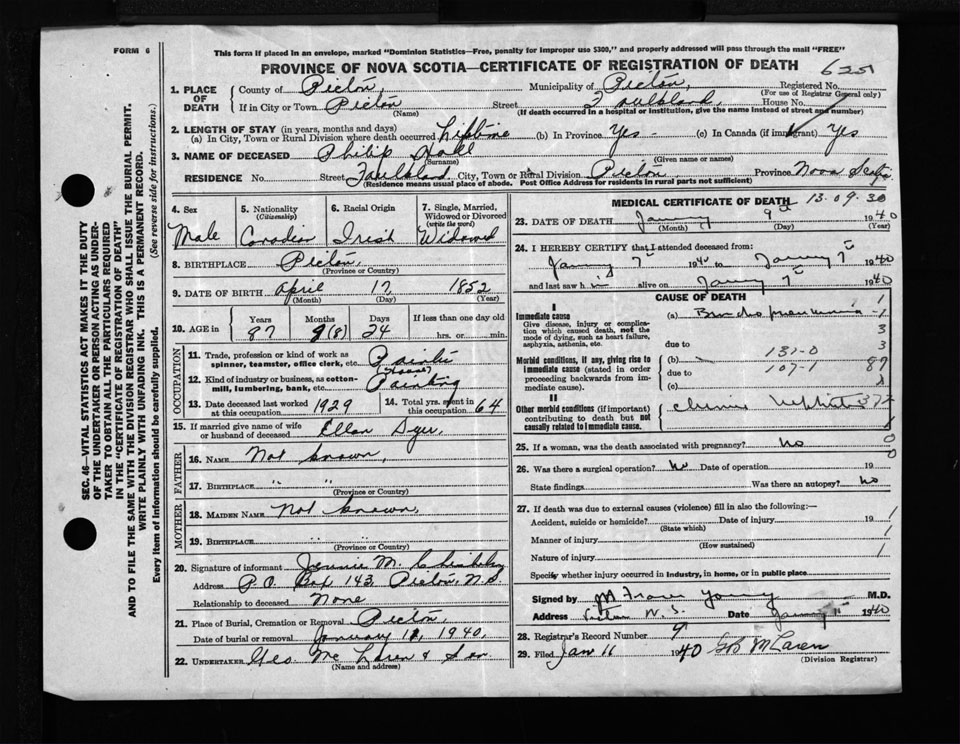 FORM 6
This form if placed in an envelope, marked "Dominion Statistics—Free, penalty for improper use $300," and properly addressed will pass through the mail "FREE"
PROVINCE OF NOVA SCOTIA—CERTIFICATE OF REGISTRATION OF DEATH 625
1. PLACE OF DEATH
County of Pictou, Municipality of Pictou, Registered No.
(For use of Registrar General only)
If in City or Town Pictou Street Faulkland, House No.
(Name) (If death occurred in a hospital or institution, give the name instead of street and number)
2. LENGTH OF STAY (in years, months and days)
(a) In City, Town or Rural Division where death occurred Lifetime (b) In Province Yes - (c) In Canada (if immigrant) Yes
3. NAME OF DECEASED Philip
(Surname) (Given name or names)
RESIDENCE No. Street Faulkland City, Town or Rural Division Pictou, Province Nova Scotia
(Residence means usual place of abode. Post Office Address for residents in rural parts not sufficient)
SEC. 46—VITAL STATISTICS ACT MAKES IT THE DUTY
OF THE UNDERTAKER OR PERSON ACTING AS UNDER-
TAKER TO OBTAIN ALL THE PARTICULARS REQUIRED
IN THE "CERTIFICATE OF REGISTRATION OF DEATH"
AND TO FILE THE SAME WITH THE DIVISION REGISTRAR WHO SHALL ISSUE THE BURIAL PERMIT.
WRITE PLAINLY WITH UNFADING INK. THIS IS A PERMANENT RECORD.
Every item of information should be carefully supplied. (See reverse side for instructions.)
4. Sex
Male
5. Nationality
(Citizenship)
Canadian
6. Racial Origin
Irish
7. Single, Married,
Widowed or Divorced
(write the word)
Widowed
8. BIRTHPLACE Pictou,
(Province or Country)
9. DATE OF BIRTH April 17, 1852
(Month) (Day) (Year)
10. AGE in
Years Months Days If less than one day old
87 9(8) 24 hrs. or min.
OCCUPATION
11. Trade, profession or kind of work as
spinner, teamster, office clerk, etc. Painter
(House)
12. Kind of industry or business, as cotton-
mill, lumbering, bank, etc. Painting
13. Date deceased last worked
at this occupation 1929
14. Total yrs. spent in
this occupation 64
15. If married give name of wife
or husband of deceased Ellen Dyer,
FATHER
16. Name Not known,
17. Birthplace " "
(Province or Country)
MOTHER
18. Maiden Name Not known,
19. Birthplace " "
(Province or Country)
20. Signature of informant Jennie M.
Address P.O. Box 143, Pictou, N.S.
Relationship to deceased None
21. Place of Burial, Cremation or Removal Pictou,
Date of burial or removal January 11, 1940.
22. UNDERTAKER Geo. McLaren & Son.
(Name and address)
MEDICAL CERTIFICATE OF DEATH 13-09-30
23. DATE OF DEATH January 9th 1940
(Month) (Day) (Year)
24. I HEREBY CERTIFY that I attended deceased from:
January 7th 1940 to January 7th 1940
and last saw him alive on January 7th 1940
CAUSE OF DEATH
I
Immediate cause
Give disease, injury or complica-
tion which caused death, not the
mode of dying, such as heart failure,
asphyxia, asthenia, etc.
(a) Bronchopneumonia
due to
Morbid conditions, if any, giving rise to
immediate cause (stated in order
proceeding backwards from im-
mediate cause).
(b) 131-0
due to 107-1
(c)
II
Other morbid conditions (if important)
contributing to death but not
causally related to immediate cause.
Chronic Nephritis
25. If a woman, was the death associated with pregnancy? No
26. Was there a surgical operation? No Date of operation 19
State findings Was there an autopsy? No
27. If death was due to external causes (violence) fill in also the following:—
Accident, suicide or homicide? Date of injury 19
(State which)
Manner of injury
(How sustained)
Nature of injury
Specify whether injury occurred in industry, in home, or in public place
Signed by Young M.D.
Address Pictou N.S. Date January 1940
28. Registrar's Record Number 9
29. Filed Jan 11 1940 McLaren
(Division Registrar)